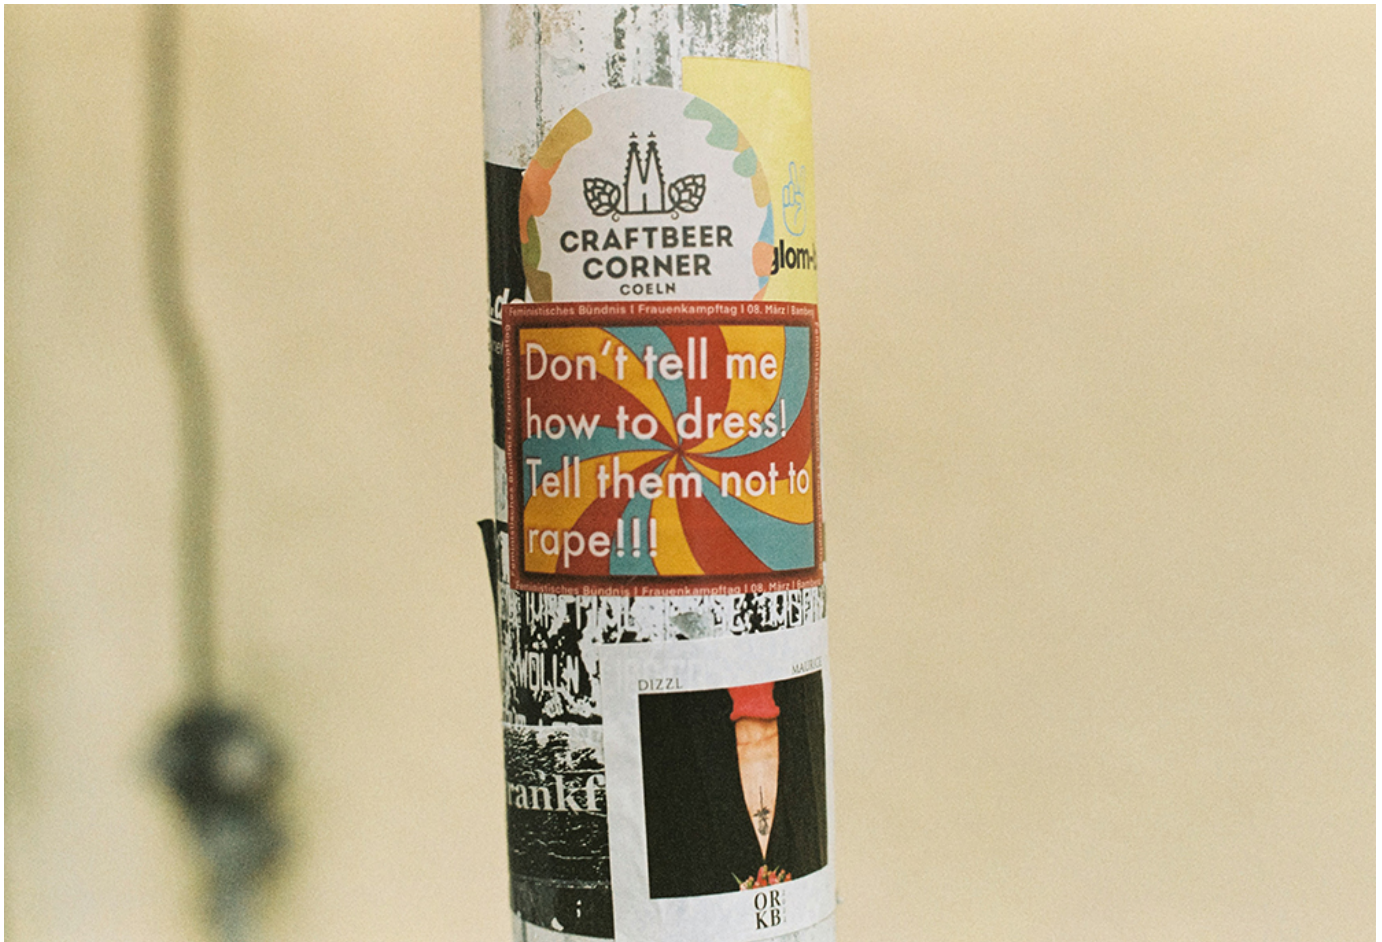 CRAFTBEER
CORNER
COELN
glom-
Feministisches Bündnis I Frauenkampftag I 08. März I Bamberg
Don't tell me
how to dress!
Tell them not to
rape!!!
Feministisches Bündnis I Frauenkampftag I 08. März I Bamberg
MÖLLN
MAURICE
DIZZL
rankf
OR
KB